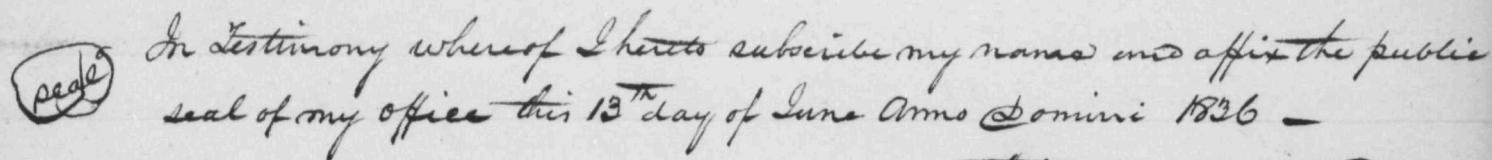 In Testimony whereof I hereto subscribe my name and affix the public
seal
seal of my office this 13th day of June Anno Domini 1836 —